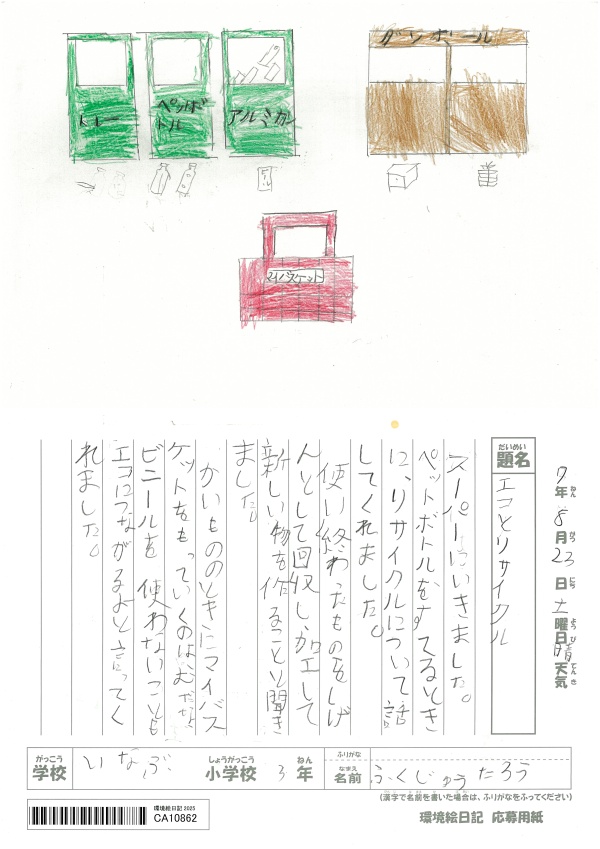 トレー
ペットボ
トル
アルミカン
ダンボール
マイバスケット
7年8月23日土曜日晴天気
ねん がつ にち ようび てんき
だいめい
題名
エコとリサイクル
スーパーにいきました。
ペットボトルをすてるとき
に、リサイクルについて話
してくれました。
使い終わったものをしげ
んとして回収し、加工して
新しい物を作ることと聞き
ました。
かいもののときにマイバス
ケットをもっていくのは、むだな
ビニールを使わないことも
エコにつながるよと言ってく
れました。
がっこう
学校
いなぶ
しょうがっこう
小学校
3
ねん
年
ふりがな
なまえ
名前
ふくじゅうたろう
(漢字で名前を書いた場合は、ふりがなをふってください)
環境絵日記 2025
CA10862
環境絵日記 応募用紙